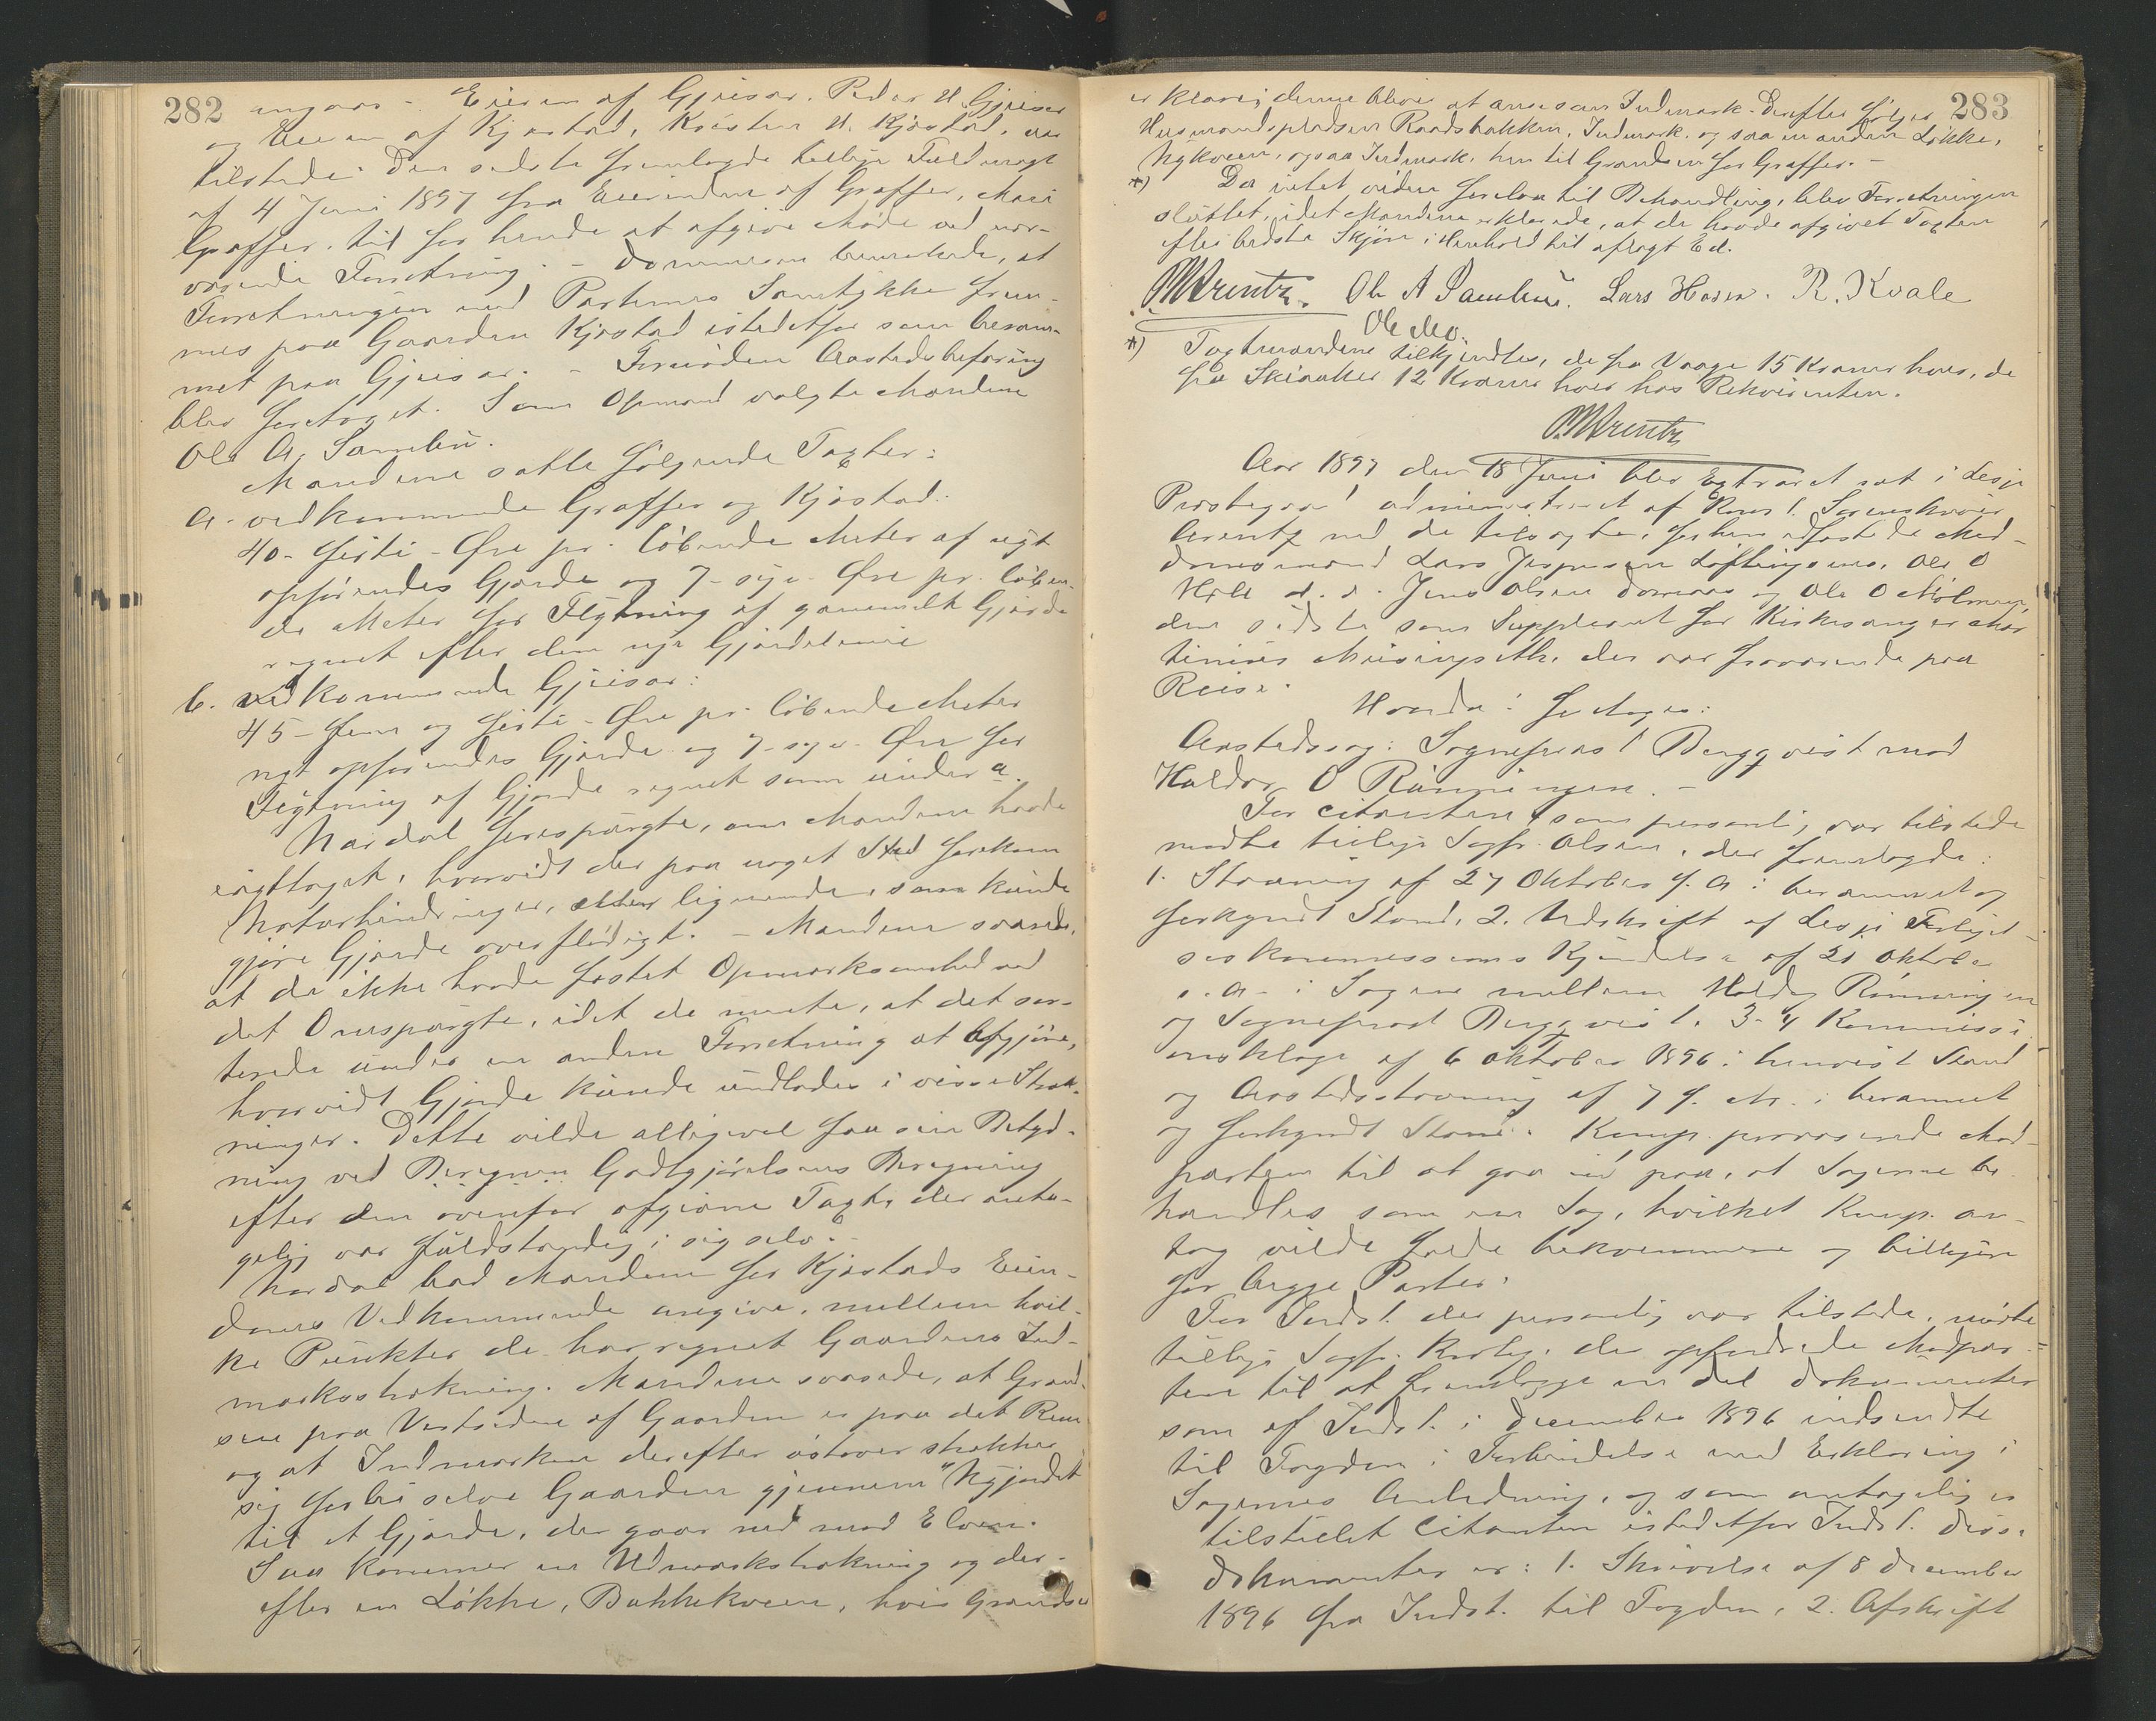 282
angaar. - Eieren af Gjeisar, Peder H. Gjeisar
og Eieren af Kjøstad, Kristen H. Kjøstad, var
tilstede. Den sidste fremlagde tillige Fuldmagt
af 4 Juni 1897 fra Eierinden af Graffer, Mari
Graffer, til for hende at afgive Møde ved nær-
værende Forretning. - Dommeren bemærkede, at
Forretningen med Parternes Samtykke frem-
mes paa Gaarden Kjøstad istedetfor som beram-
met paa Gjeisar. - Fornøden Aastedsbefaring
blev foretaget. Som Opmand valgte Mændene
Ole A. Sambu.
Mændene satte følgende Taxter:
a. vedkommende Graffer og Kjøstad:
40 - førti - Øre pr. løbende Meter af nyt
opførendes Gjærde og 7 - syv - Øre pr. løben-
de Meter for Flytning af gammelt Gjærde
regnet efter den nye Gjærdelinie
b. vedkommende Gjeisar:
45 - fem og førti - Øre pr. løbende Meter
nyt opførendes Gjærde og 7 - syv - Øre for
Flytning af Gjærde regnet som under a.
Nardal forespurgte, om Mændene havde
iagttaget, hvorvidt der paa noget Sted forekom
Naturhindringer, eller lignende, som kunde
gjøre Gjærde overflødigt. - Mændene svarede,
at de ikke havde fæstet Opmærksomhed ved
det Omspurgte, idet de mente, at det sor-
terede under en anden Forretning at afgjøre,
hvorvidt Gjærde kunde undlades i visse Stræk-
ninger. Dette vilde alligevel faa sin Betyd-
ning ved Godtgjørelsens Beregning
efter den ovenfor afgivne Taxt, der anta-
gelig var fuldstændig i sig selv.
Nardal bad Mændene for Kjøstads Eien-
doms Vedkommende angive, mellem hvil-
ke Punkter de har regnet Gaardens Ind-
marksstrækning. Mændene svarede, at Grænd-
sen paa Vestsiden af Gaarden er paa det Rene
og at Indmarken derefter østover strækker
sig forbi selve Gaarden gjennem "Nyjordet"
til et Gjærde, der gaar ned mod Elven.
Saa kommer en Udmarkstrækning og der-
efter en Løkke, Bakkekveen, hvis Grændser
283
er klare; denne bliver at ansees som Indmark. Derefter følger
Husmandspladsen Raadsbakken, Indmark, og saa en anden Løkke,
Nykveen, ogsaa Indmark, hen til Grændsen for Graffer. -
*) Da intet videre forelaa til Behandling, blev Forretningen
sluttet, idet Mændene erklærede, at de havde afgivet Taxten
efter bedste Skjøn i Henhold til aflagt Ed.
M Arentz. Ole A Sambu. Lars Hosen. R. Kvale
Ole Mo.
*) Taxtmændene tilkjendtes, de fra Vaage 15 Kroner hver, de
fra Skiaaker 12 Kroner hver hos Rekvirenten.
M Arentz
Aar 1897 den 18 Juni blev Extraret sat i Lesje
Prestegaard administreret af Konst. Sorenskriver
Arentz med de tilsagte, forhen edfæstede Med-
domsmænd Lars Jespersen Løftingsmo, Ole O
Hole d. æ. Jens Olsen Dombaas og Ole O Mølmen,
den sidste som Suppleant for Kirkesanger Mar-
tinius Musingseth, der var fraværende paa
Reise.
Hvorda: foretoges:
Aastedssag: Sogneprest Bergqvist mod
Haldor O Rånningen. -
For Citanten som personlig var tilstede
mødte tillige Sagf. Olsen, der fremlagde:
1. Stævning af 27 Oktober f. A. i berammet og
forkyndt Stand, 2. Udskrift af Lesje Forligel-
seskommissions Kjendelse af 21 Oktober
s. A. i Sagen mellem Haldor Rånningen
og Sogneprest Bergqvist. 3-4 Kommissi-
onsklage af 6 Oktober 1896 i henvist Stand
og Aastedsstævning af 7 f. M. i berammet
og forkyndt Stand. Komp. provoserede Mod-
parten til at gaa ind paa, at Sagerne be-
handles som en Sag, hvilket Komp. an-
tog vilde falde bekvemmere og billigere
for begge Parter.
For Indst. der personlig var tilstede, mødte
tillige Sagf. der opfordrede Modpar-
ten til at fremlægge en del Dokumenter
som af Indst. i December 1896 indsendte
til Fogden i Forbindelse med Erklæring i
Sagernes Anledning, og som antagelig er
tilstillet Citanten istedetfor Indst. Disse
Dokumenter er: 1. Skrivelse af 8 December
1896 fra Indst. til Fogden, 2. Afskrift